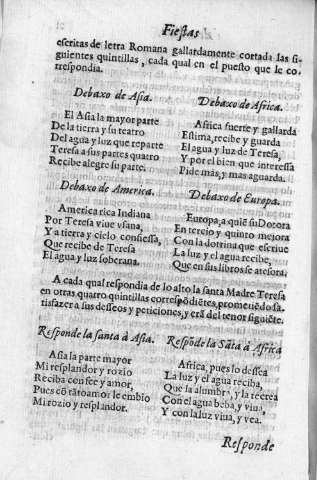 Fiestas
escritas de letra Romana gallardamente cortada las si-
guientes quintillas, cada qual en el puesto que le co-
rrespondia.
Debaxo de Asia.
El Asia la mayor parte
De la tierra y su teatro
Del agua y luz que reparte
Teresa a sus partes quatro
Recibe alegre su parte.
Debaxo de Africa.
Africa fuerte y gallarda
Estima, recibe y guarda
El agua y luz de Teresa,
Y por el bien que interessa
Pide más, y mas aguarda.
Debaxo de America.
America rica Indiana
Por Teresa viue vsana,
Y a tierra y cielo confiessa,
Que recibe de Teresa
El agua y luz soberana.
Debaxo de Europa.
Europa, a quiẽ su Dotora
En tercio y quinto mejora
Con la dotrina que escriue
La luz y el agua recibe,
Que en sus libros se atesora.
A cada qual respondia de lo alto la santa Madre Teresa
en otras quatro quintillas correspõdiẽtes, prometiẽdo sa-
tisfazer a sus desseos y peticiones, y erã del tenor siguiẽte.
Responde la santa à Asia.
Asia la parte mayor
Mi resplandor y rozio
Reciba con fee y amor,
Pues cõ tãto amor le embio
Mi rozio y resplandor.
Respõde la Sãta à Africa
Africa, pues lo dessea
La luz y el agua reciba,
Que la alumbra, y la recrea
Con el agua beba, y viua,
Y con la luz viua, y vea.
Responde